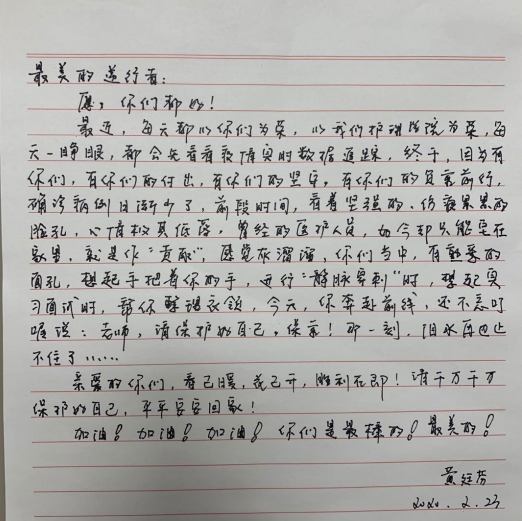 最美的逆行者：
愿，你们都好！
最近，每天都以你们为荣，以我们护理学院为荣，每
天一睁眼，都会先看看疫情实时数据追踪，终于，因为有
你们，有你们的付出，有你们的坚守，有你们的负重前行，
确诊病例日渐少了，前段时间，看着坚强的、伤痕累累的
脸孔，心情极其低落，曾经的医护人员，如今却只能呆在
家里，就是作“贡献”，感觉灰溜溜，你们当中，有熟悉的
面孔，想起手把着你的手，进行“静脉穿刺”时，想起实
习面试时，帮你整理衣领，今天，你奔赴前线，还不忘叮
嘱说：老师，请保护好自己，保重！那一刻，泪水再也止
不住了……
亲爱的你们，春已暖，花已开，胜利在即！请千万千万
保护好自己，平平安安回家！
加油！加油！加油！你们是最棒的！最美的！
黄
2020.2.23